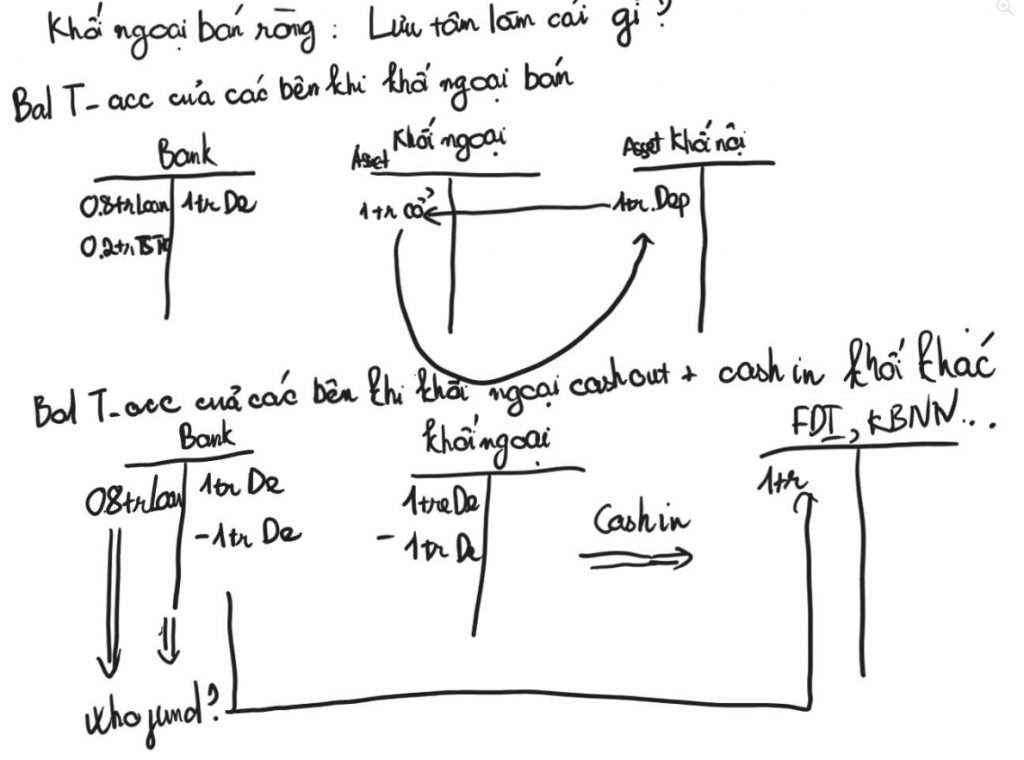 Khối ngoại bán ròng : Lưu tâm làm cái gì ?
Bal T-acc của các bên khi khối ngoại bán
Bank
0.8tr Loan 1tr De
0.2tr
Asset Khối ngoại
1tr cổ
Asset Khối nội
1tr. Dep
Bal T-acc của các bên khi khối ngoại cash out + cash in khối khác
Bank
0.8tr Loan 1tr De
-1tr De
Khối ngoại
1tr De
- 1tr De
Cash in
FDI, KBNN...
1tr
Who fund?